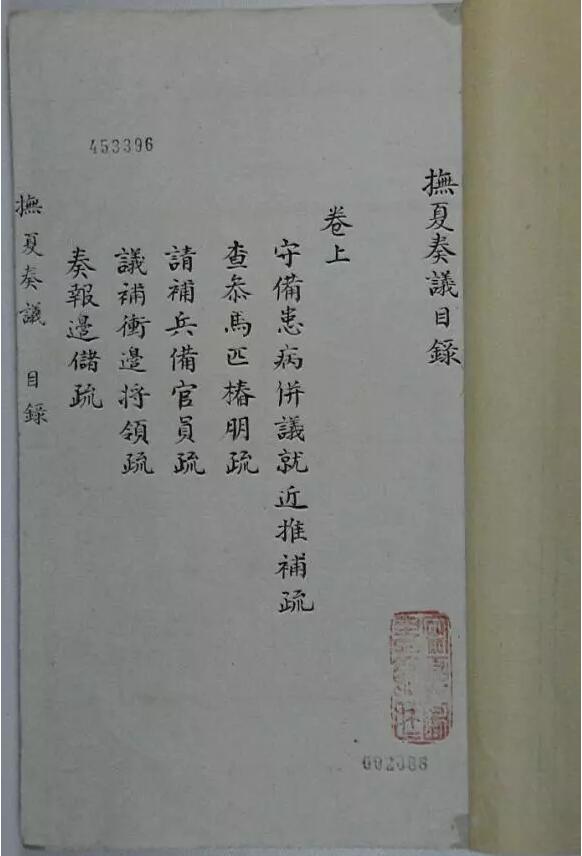 撫夏奏議目錄
卷上
守備患病併議就近推補疏
查叅馬匹樁朋疏
請補兵備官員疏
議補衝邊将領疏
奏報邊儲疏
撫夏奏議 目錄
453396